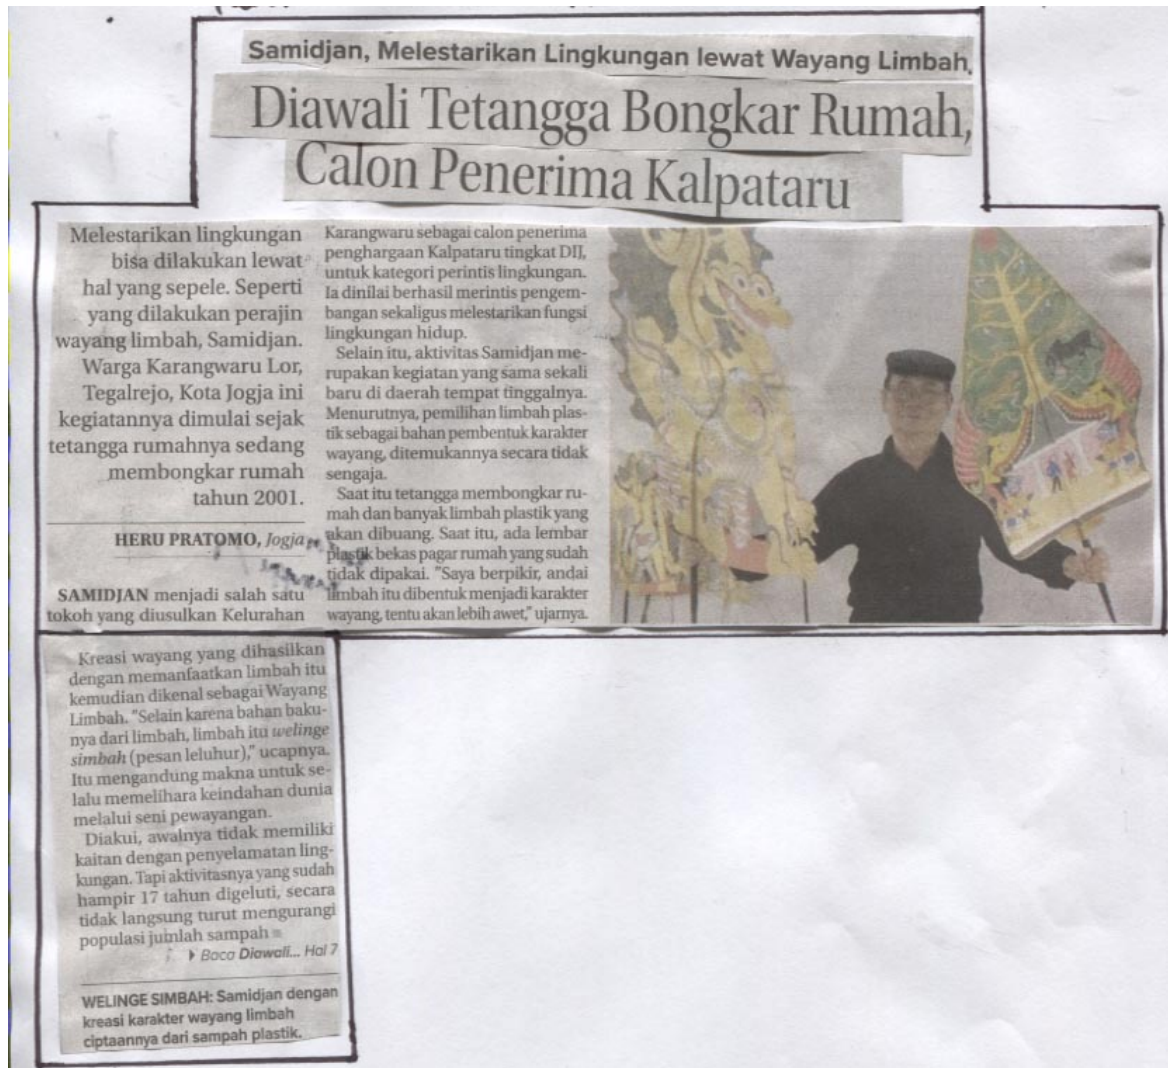 Samidjan, Melestarikan Lingkungan lewat Wayang Limbah,
Diawali Tetangga Bongkar Rumah,
Calon Penerima Kalpataru
Melestarikan lingkungan
bisa dilakukan lewat
hal yang sepele. Seperti
yang dilakukan perajin
wayang limbah, Samidjan.
Warga Karangwaru Lor,
Tegalrejo, Kota Jogja ini
kegiatannya dimulai sejak
tetangga rumahnya sedang
membongkar rumah
tahun 2001.
HERU PRATOMO, Jogja
SAMIDJAN menjadi salah satu
tokoh yang diusulkan Kelurahan
Karangwaru sebagai calon penerima
penghargaan Kalpataru tingkat DIJ,
untuk kategori perintis lingkungan.
Ia dinilai berhasil merintis pengem-
bangan sekaligus melestarikan fungsi
lingkungan hidup.
Selain itu, aktivitas Samidjan me-
rupakan kegiatan yang sama sekali
baru di daerah tempat tinggalnya.
Menurutnya, pemilihan limbah plas-
tik sebagai bahan pembentuk karakter
wayang, ditemukannya secara tidak
sengaja.
Saat itu tetangga membongkar ru-
mah dan banyak limbah plastik yang
akan dibuang. Saat itu, ada lembar
plastik bekas pagar rumah yang sudah
tidak dipakai. "Saya berpikir, andai
limbah itu dibentuk menjadi karakter
wayang, tentu akan lebih awet," ujarnya.
Kreasi wayang yang dihasilkan
dengan memanfaatkan limbah itu
kemudian dikenal sebagai Wayang
Limbah. "Selain karena bahan baku-
nya dari limbah, limbah itu welinge
simbah (pesan leluhur)," ucapnya.
Itu mengandung makna untuk se-
lalu memelihara keindahan dunia
melalui seni pewayangan.
Diakui, awalnya tidak memiliki
kaitan dengan penyelamatan ling-
kungan. Tapi aktivitasnya yang sudah
hampir 17 tahun digeluti, secara
tidak langsung turut mengurangi
populasi jumlah sampah
Baca Diawali... Hal 7
WELINGE SIMBAH: Samidjan dengan
kreasi karakter wayang limbah
ciptaannya dari sampah plastik.